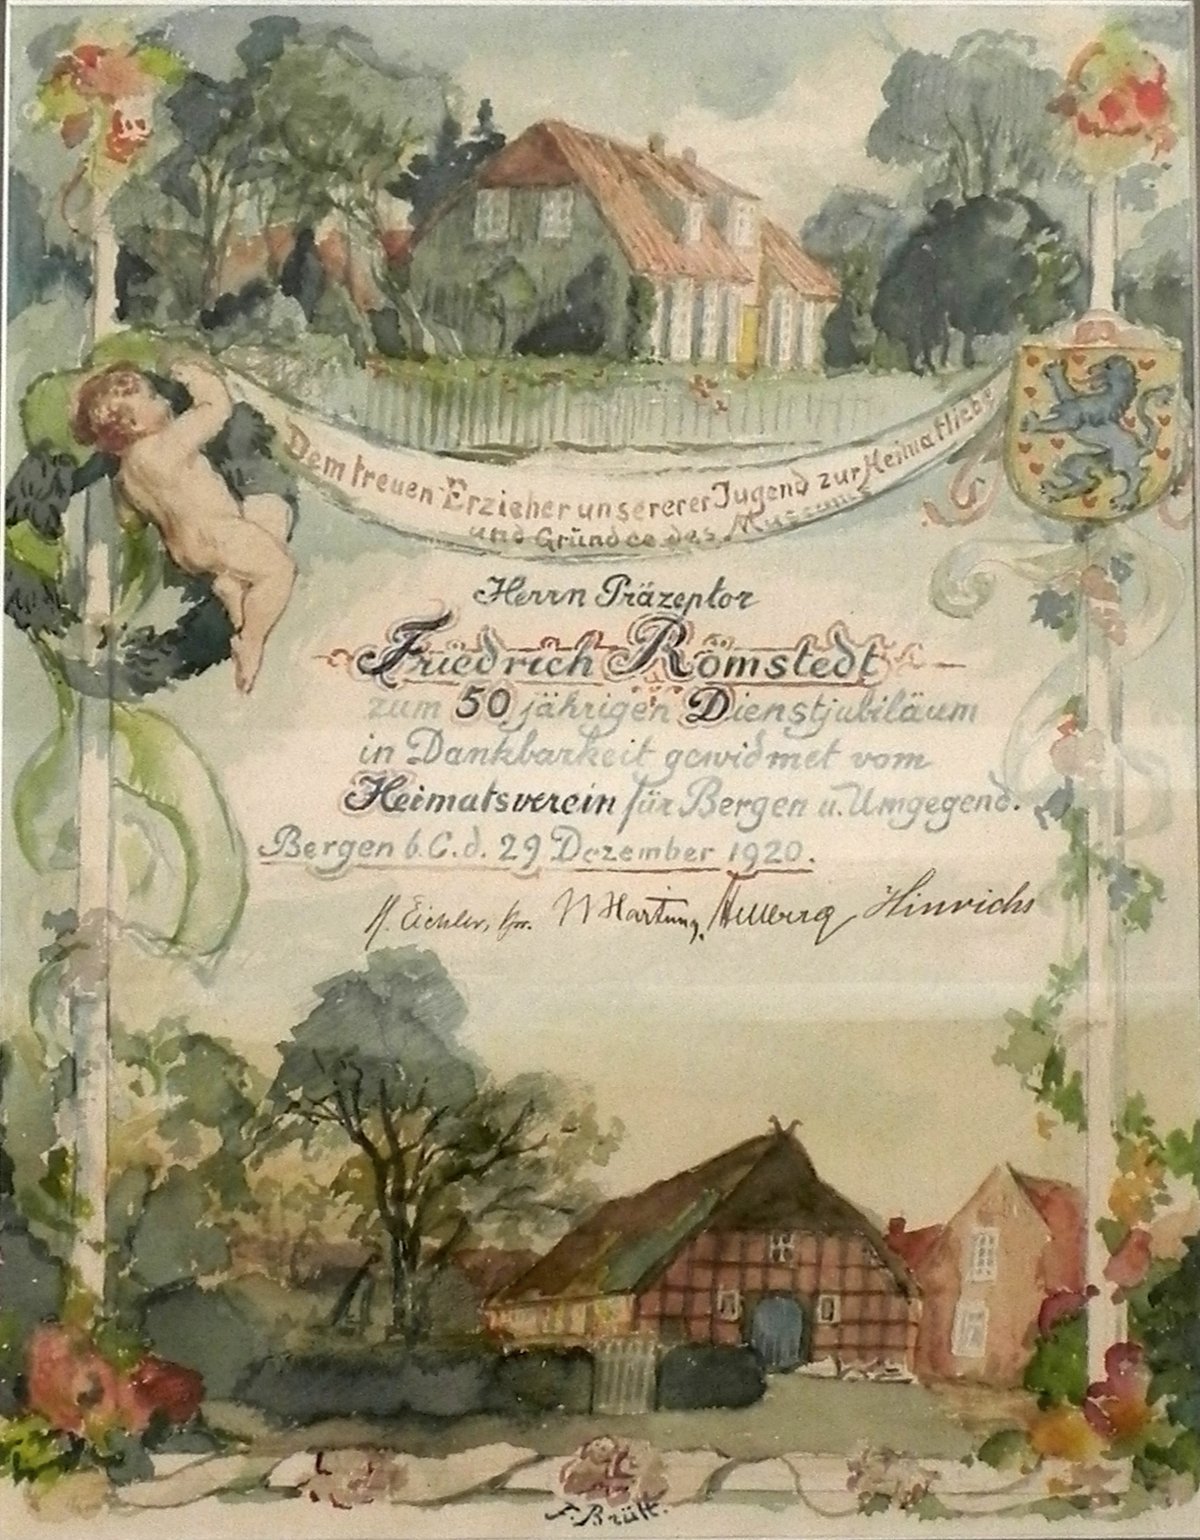 Dem treuen Erzieher unsererer Jugend zur Heimatliebe
und Gründee des Museums
Herrn Präzeptor
Friedrich Römstedt
zum 50 jährigen Dienstjubiläum
in Dankbarkeit gewidmet vom
Heimatsverein für Bergen u. Umgegend.
Bergen b. C. d. 29 Dezember 1920.
Eichler, Hartung, Hinrichs
F. Brütt.